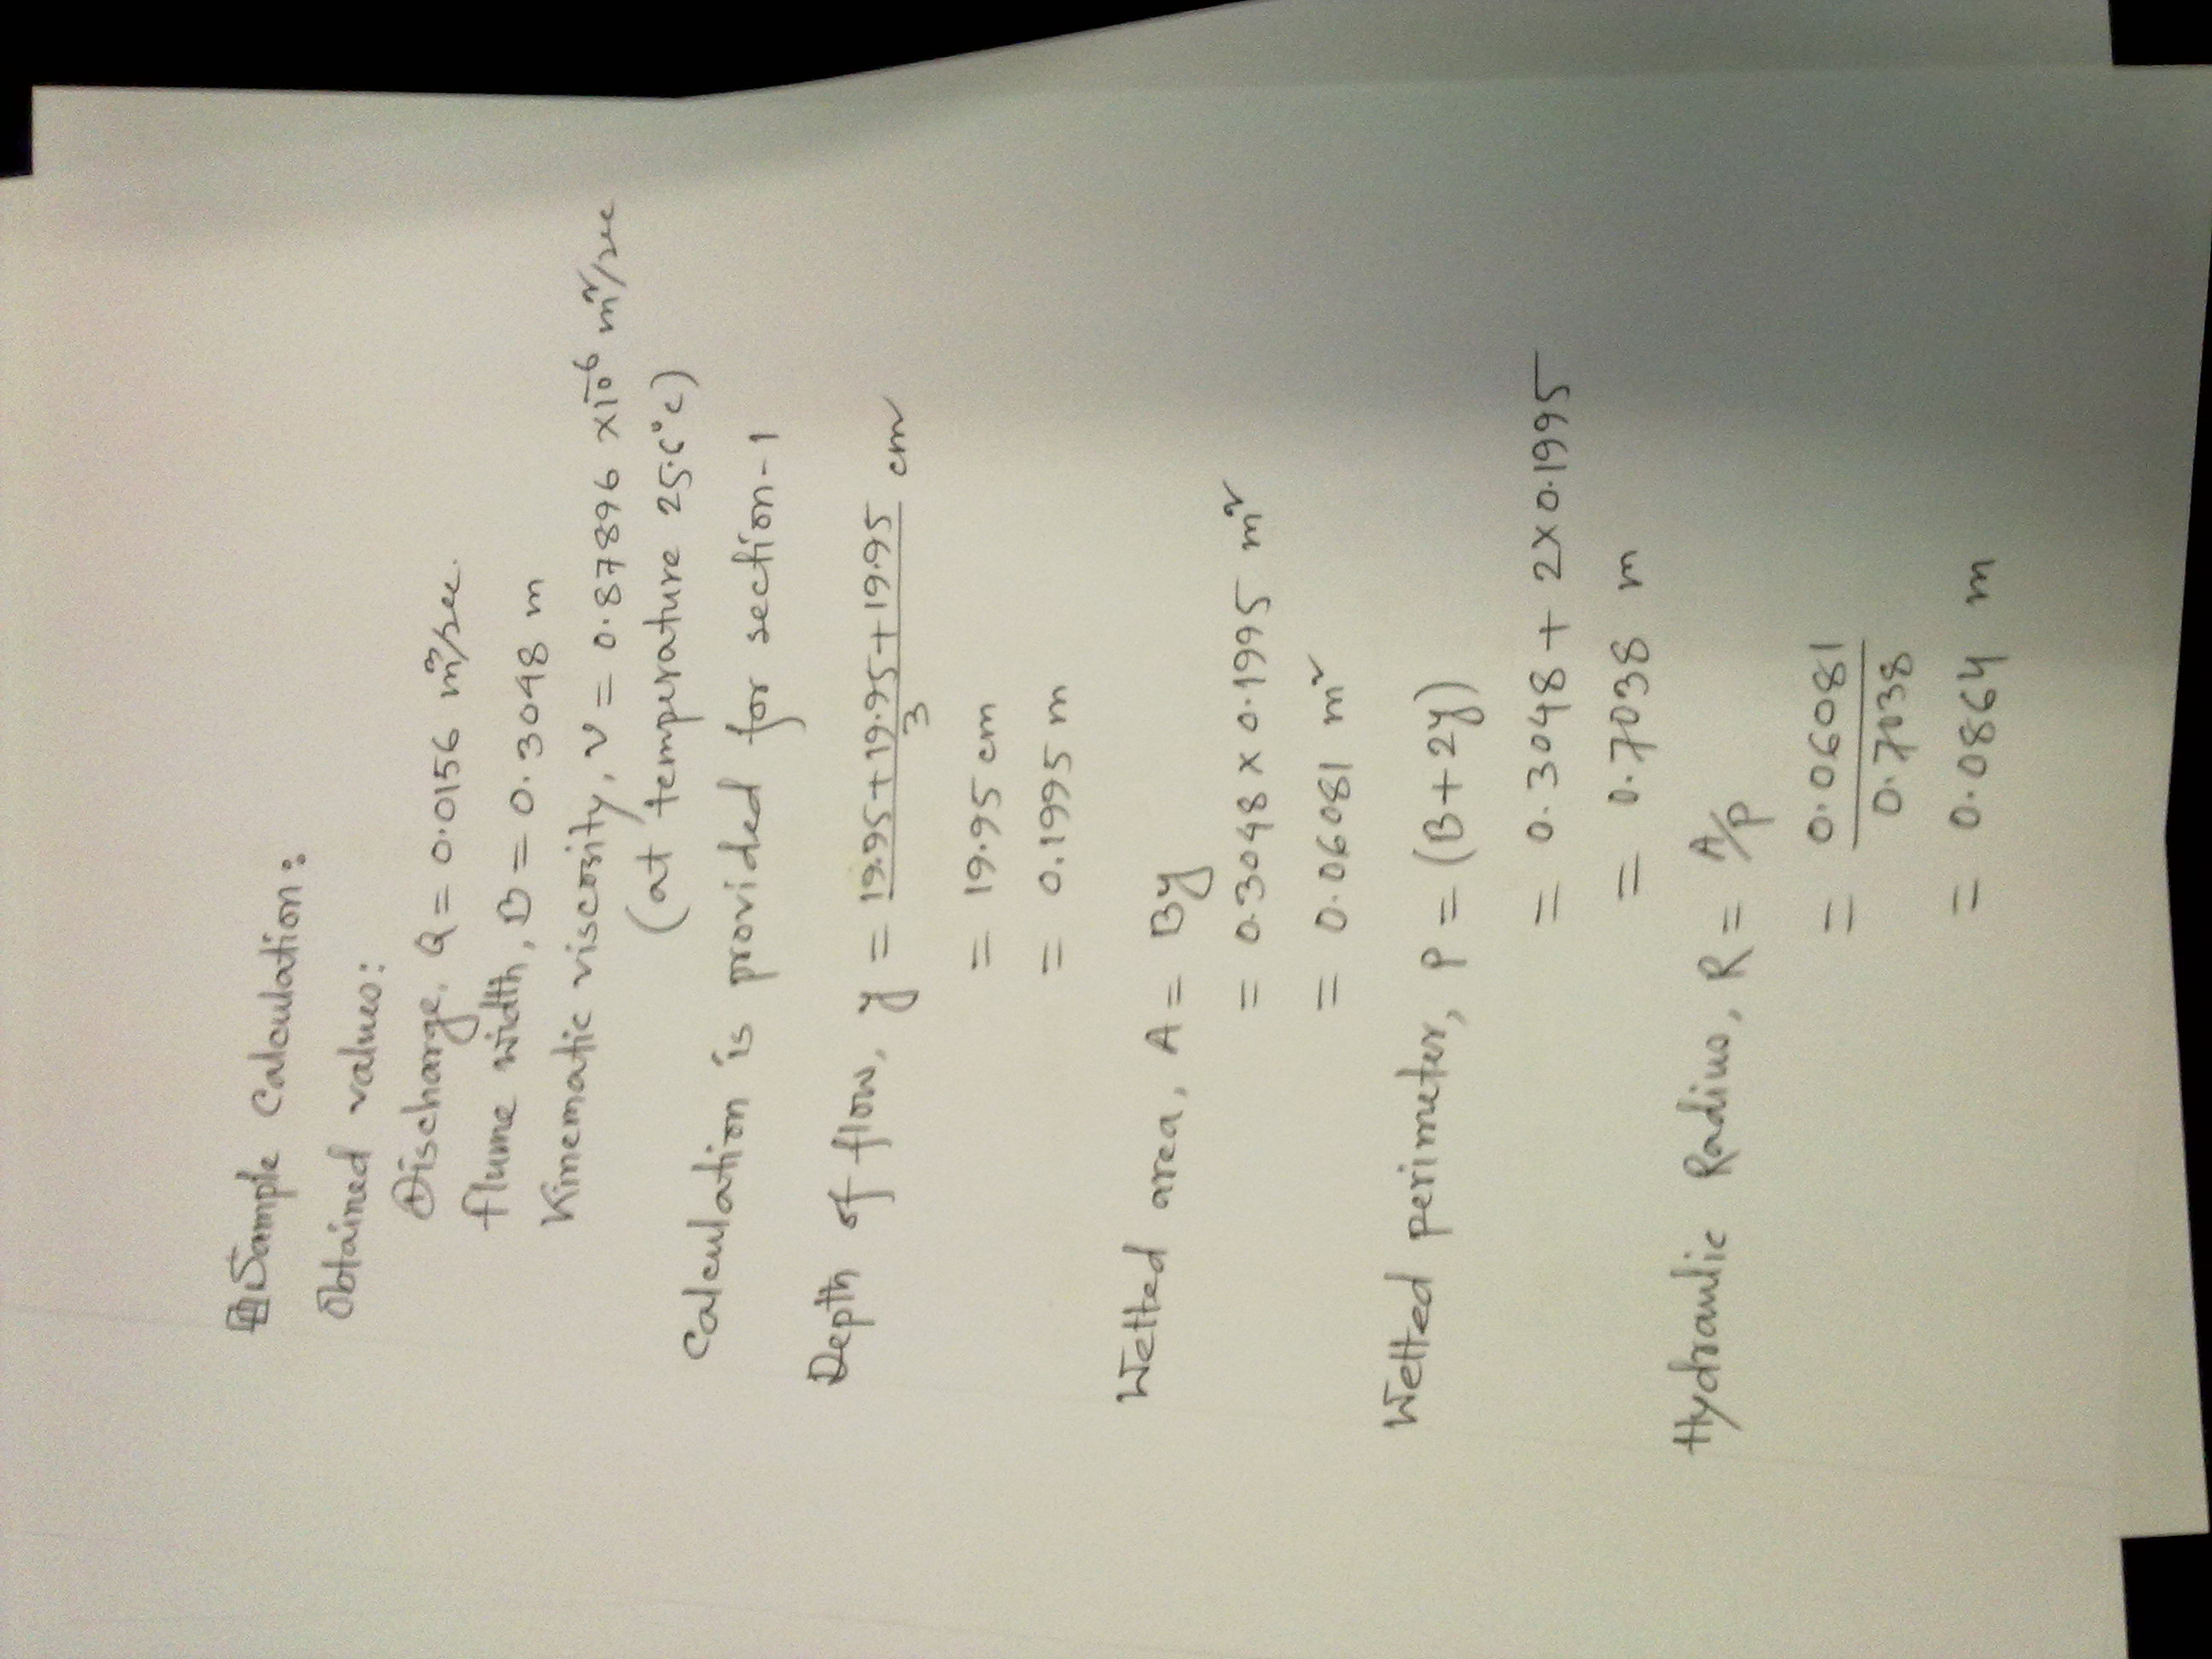 Sample Calculation:
Obtained values:
Discharge, Q = 0.0156 m³/sec.
flume width, B = 0.3048 m
Kinematic viscosity, ν = 0.87896 × 10⁻⁶ m²/sec
(at temperature 25.(°c)
Calculation is provided for section-1
Depth of flow, y = (19.95+19.95+19.95)/3 cm
= 19.95 cm
= 0.1995 m
Wetted area, A = By
= 0.3048 × 0.1995 m²
= 0.06081 m²
Wetted perimeter, P = (B+2y)
= 0.3048 + 2×0.1995
= 0.7038 m
Hydraulic Radius, R = A/P
= 0.06081/0.7038
= 0.0864 m